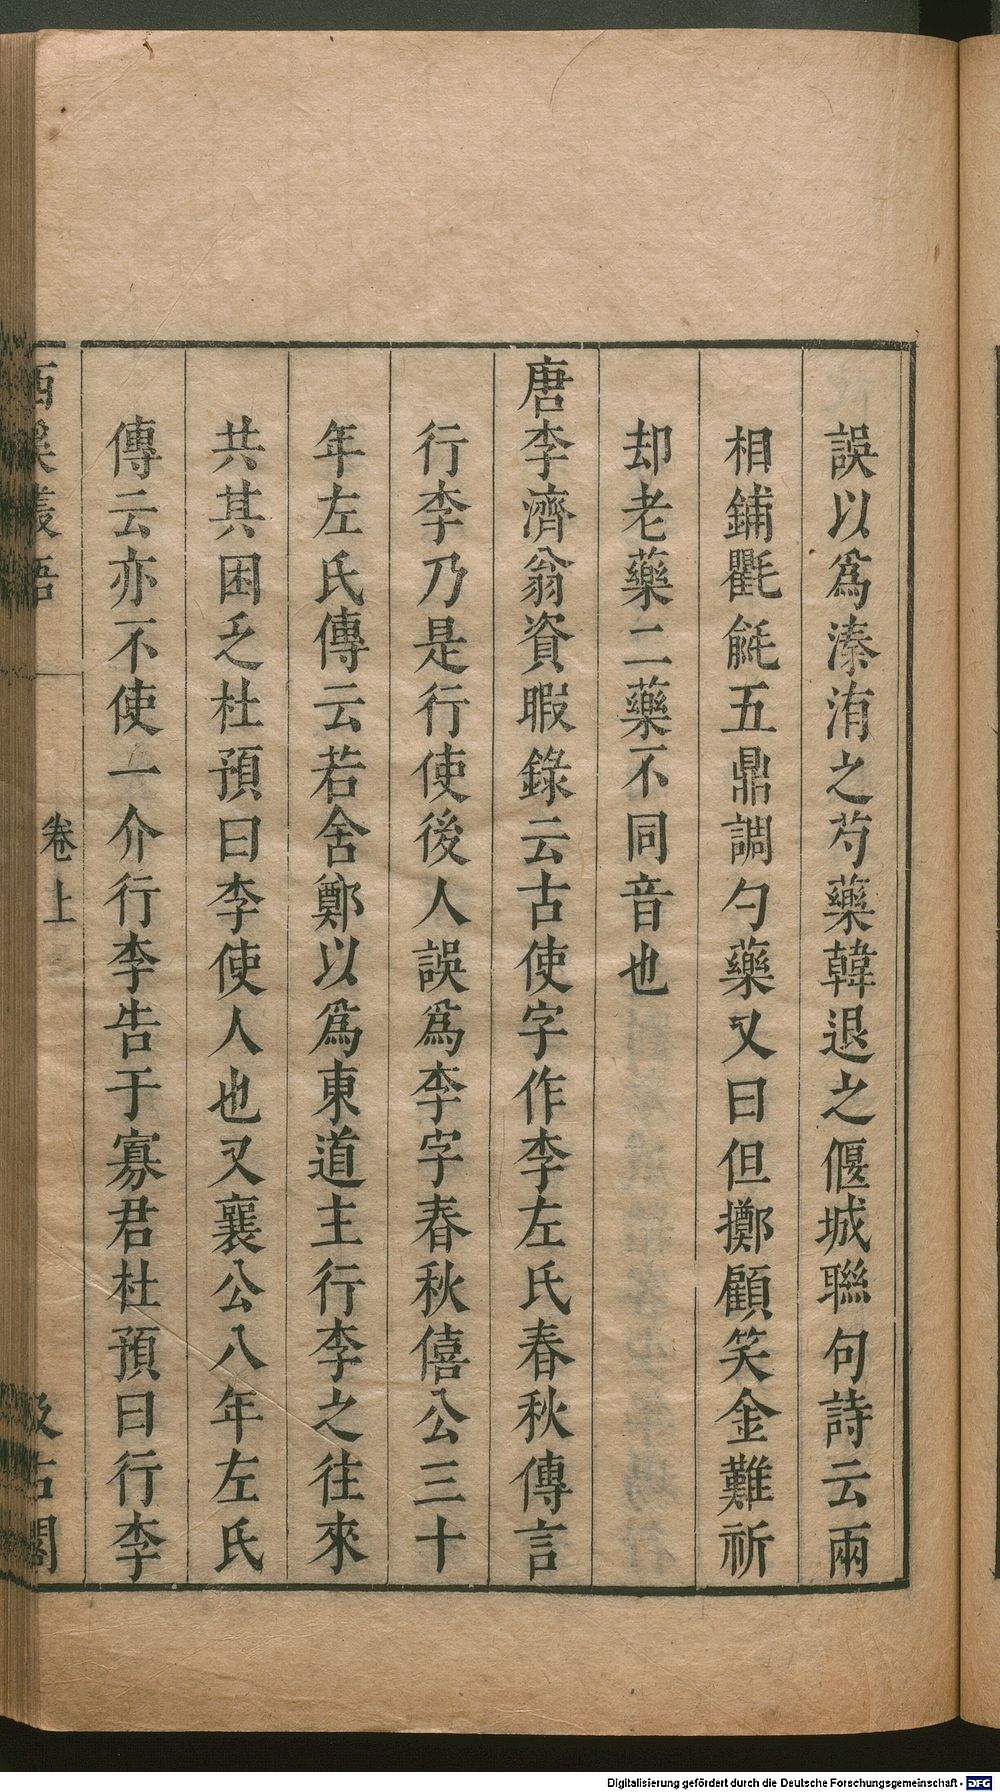 誤以爲溱洧之芍藥韓退之偃城聯句詩云兩
相鋪氍毹五鼎調勺藥又曰但擲顧笑金難祈
却老藥二藥不同音也
唐李濟翁資暇錄云古使字作李左氏春秋傳言
行李乃是行使後人誤爲李字春秋僖公三十
年左氏傳云若舍鄭以爲東道主行李之往來
共其困乏杜預曰李使人也又襄公八年左氏
傳云亦不使一介行李告于寡君杜預曰行李
西溪叢語
卷上
汲古閣
Digitalisierung gefördert durch die Deutsche Forschungsgemeinschaft - DFG